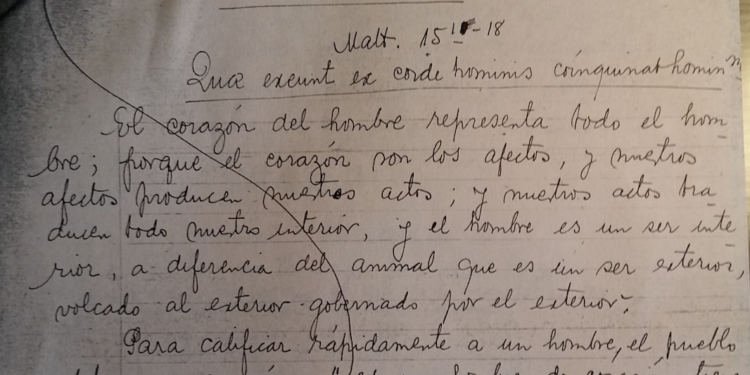 Matt. 15 - 18
Quæ exeunt ex corde hominis coinquinat homin
El corazón del hombre representa todo el hom
bre; porque el corazón son los afectos, y nuestros
afectos producen nuestros actos; y nuestros actos tra
ducen todo nuestro interior, y el hombre es un ser inte
rior, a diferencia del animal que es un ser exterior,
volcado al exterior gobernado por el exterior.
Para calificar rápidamente a un hombre, el pueblo